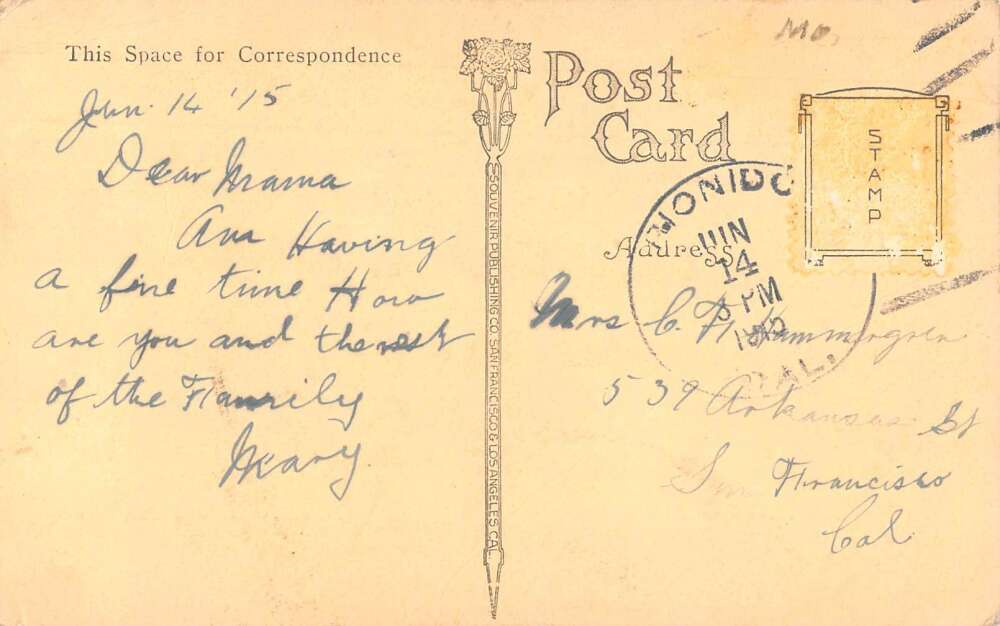 This Space for Correspondence
Jun. 14 '15
Dear Mama
Am Having
a fine time How
are you and the rest
of the Family
Mary
SOUVENIR PUBLISHING CO. SAN FRANCISCO & LOS ANGELES CAL.
Mo.
Post
Card
STAMP
MONIDO
JUN
14
3 PM
1915
CAL.
Address
Mrs C. F. Hammergren
539 Arkansas St
San Francisco
Cal.